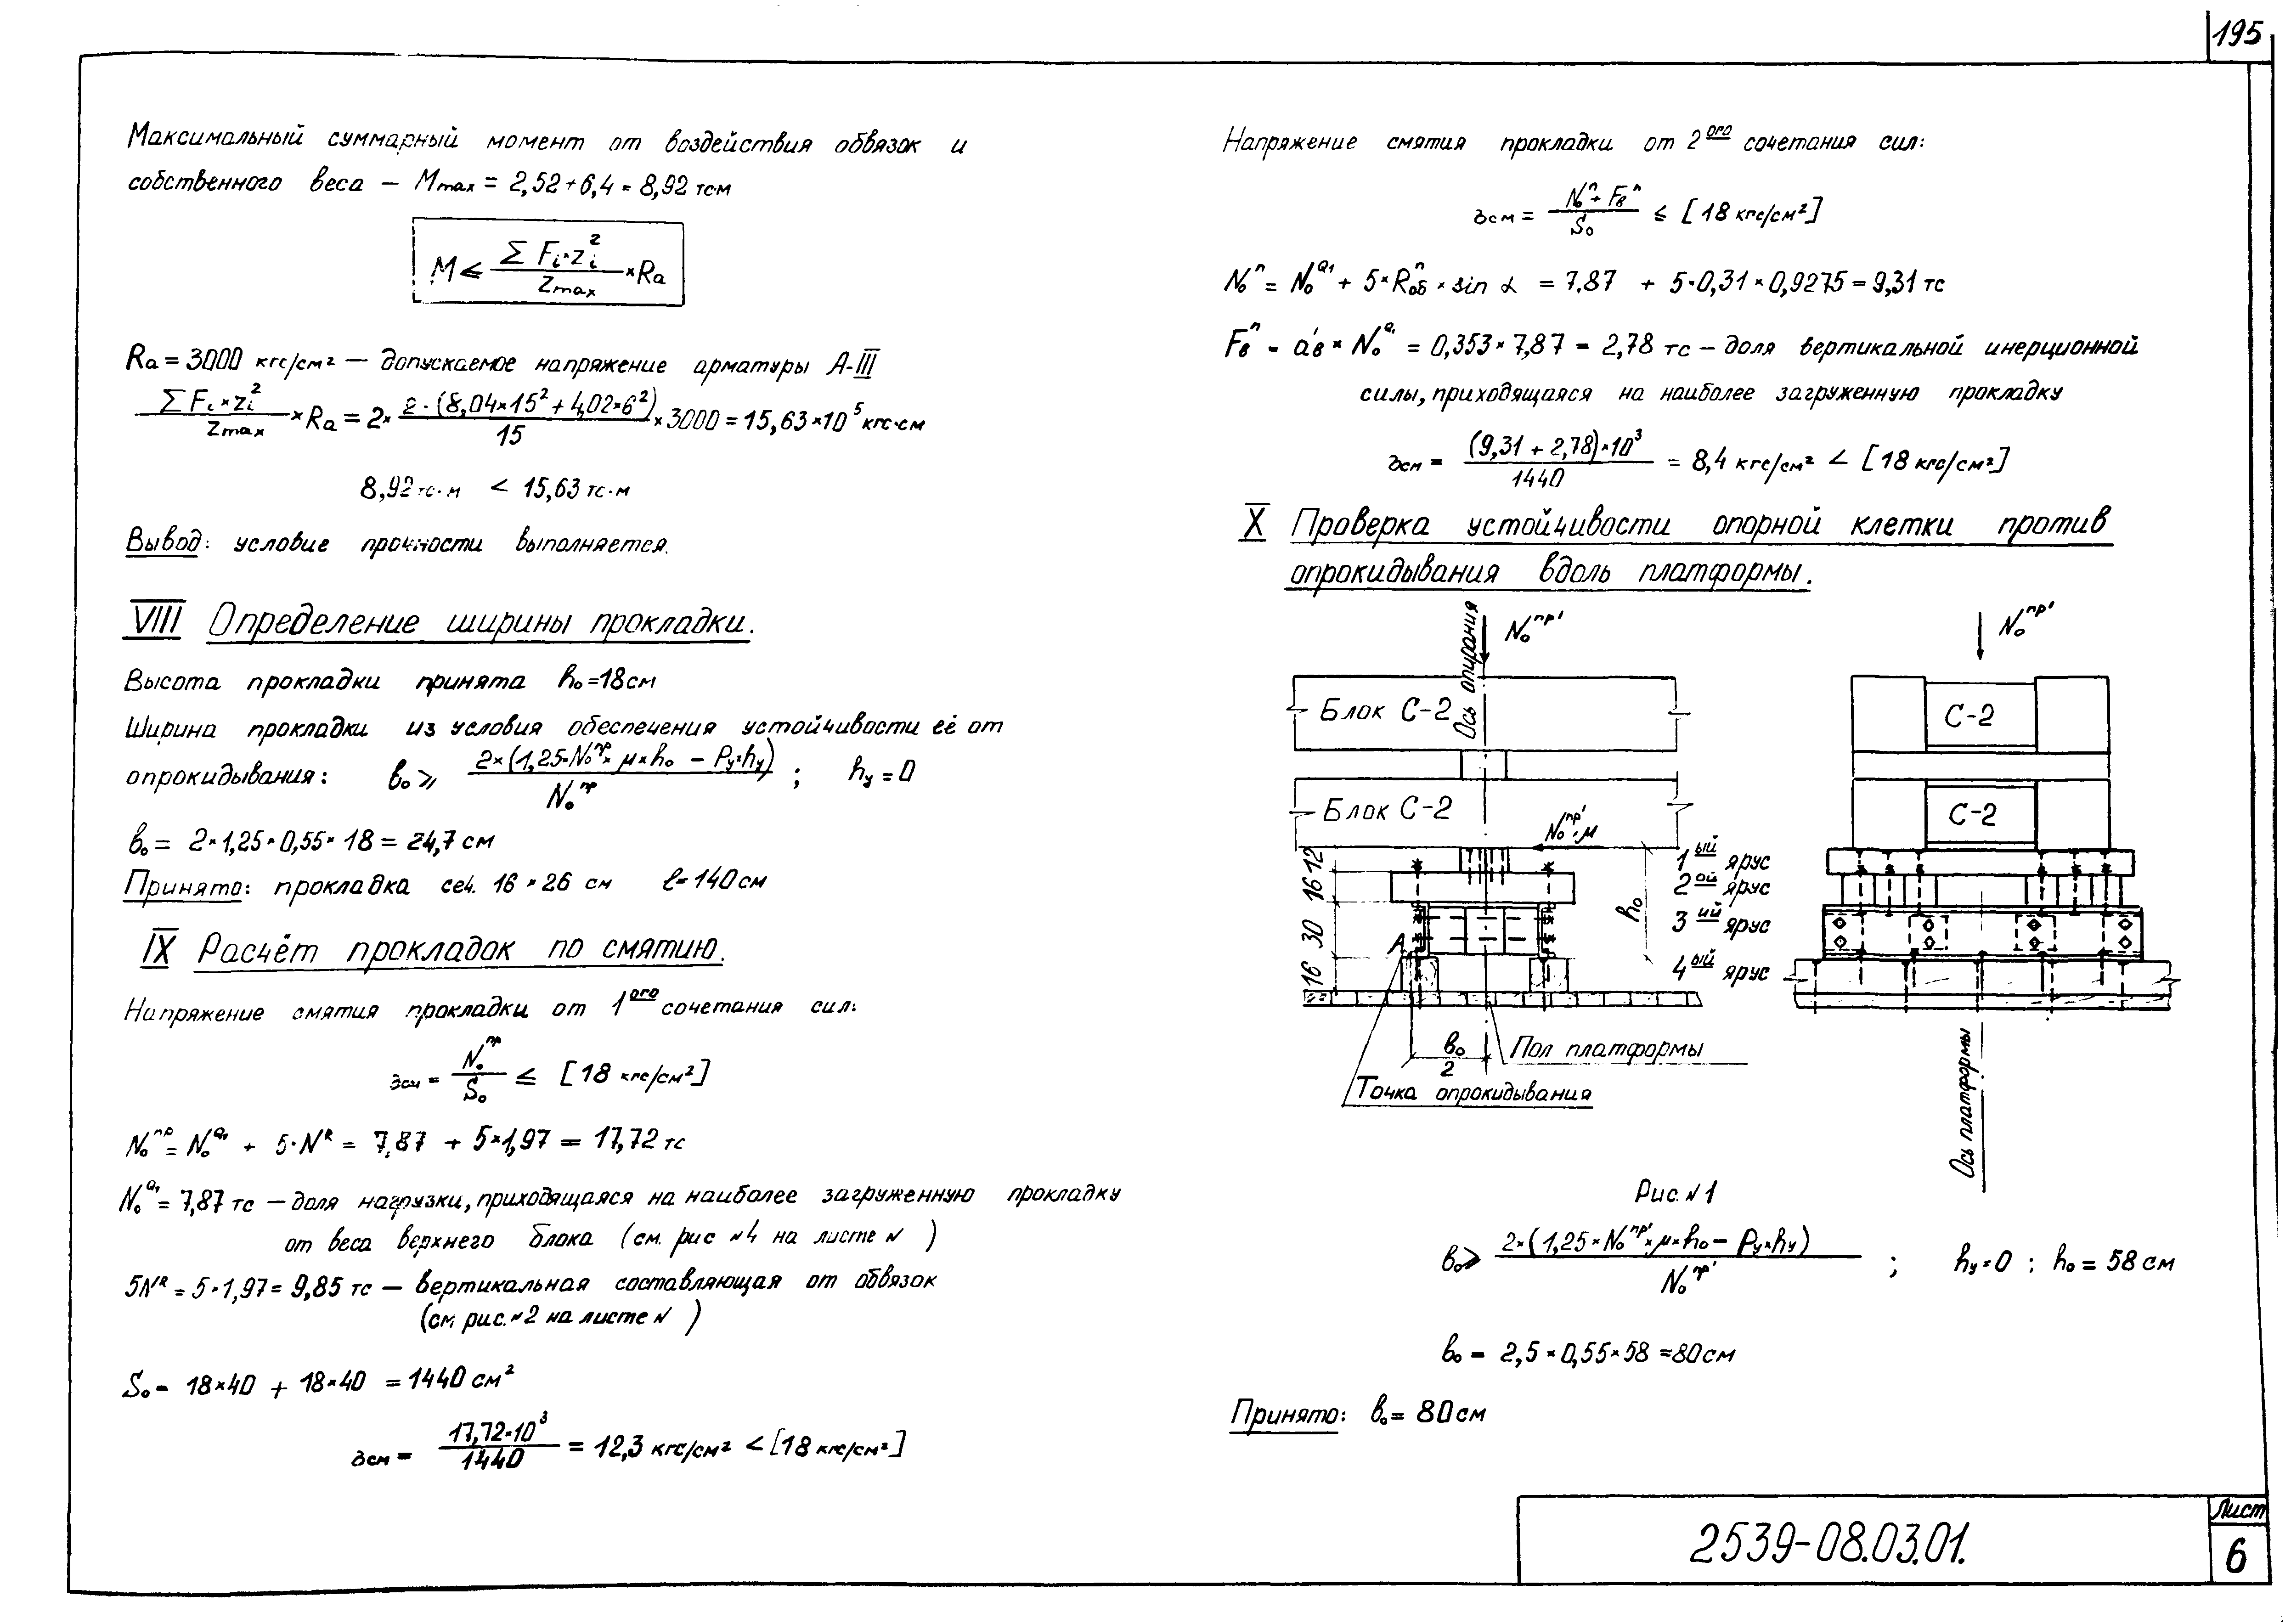 195
Максимальный суммарный момент от воздействия обвязок и
собственного веса – Mmax = 2,52 + 6,4 = 8,92 тс·м
M ≤ ∑ Fi × zi² / Zmax × Ra
Ra = 3000 кгс/см² – допускаемое напряжение арматуры А-III
∑ Fi × zi² / Zmax × Ra = 2 × 2 · (8,04 × 15² + 4,02 × 6²) / 15 × 3000 = 15,63 × 10⁵ кгс·см
8,92 тс·м < 15,63 тс·м
Вывод: условие прочности выполняется.
VIII Определение ширины прокладки.
Высота прокладки принята h₀ = 18 см
Ширина прокладки из условия обеспечения устойчивости её от
опрокидывания: b₀ ≥ 2 × (1,25 × N₀ᵖᵖ × μ × h₀ – Pу × hу) / N₀ᵖᵖ ; hу = 0
b₀ = 2 × 1,25 × 0,55 × 18 = 24,7 см
Принято: прокладка сеч. 16 × 26 см ℓ = 140 см
IX Расчёт прокладок по смятию.
Напряжение смятия прокладки от 1ого сочетания сил:
σсм = N₀ᵖᵖ / S₀ ≤ [18 кгс/см²]
N₀ᵖᵖ = N₀Q₁ + 5·Nᴿ = 7,87 + 5 × 1,97 = 17,72 тс
N₀Q₁ = 7,87 тс – доля нагрузки, приходящаяся на наиболее загруженную прокладку
от веса верхнего блока (см. рис №4 на листе № )
5Nᴿ = 5 · 1,97 = 9,85 тс – вертикальная составляющая от обвязок
(см рис. №2 на листе № )
S₀ = 18 × 40 + 18 × 40 = 1440 см²
σсм = 17,72 · 10³ / 1440 = 12,3 кгс/см² < [18 кгс/см²]
Напряжение смятия прокладки от 2ого сочетания сил:
σсм = N₀ⁿ + Fвⁿ / S₀ ≤ [18 кгс/см²]
N₀ⁿ = N₀Q₁ + 5 × Rобⁿ × sin α = 7.87 + 5 · 0,31 × 0,9275 = 9,31 тс
Fвⁿ = a'в × N₀Q₁ = 0,353 × 7,87 = 2,78 тс – доля вертикальной инерционной
силы, приходящаяся на наиболее загруженную прокладку
σсм = (9,31 + 2,78) · 10³ / 1440 = 8,4 кгс/см² < [18 кгс/см²]
X Проверка устойчивости опорной клетки против
опрокидывания вдоль платформы.
Ось опирания
N₀ᵖᵖ'
N₀ᵖᵖ'
Блок С-2
С-2
Блок С-2
С-2
N₀ᵖᵖ' · μ
12
16
30
16
h₀
1ый ярус
2ой ярус
3ий ярус
4ый ярус
А
b₀ / 2
Пол платформы
Точка опрокидывания
Ось платформы
Рис. №1
b₀ ≥ 2 × (1,25 × N₀ᵖᵖ' × μ × h₀ – Pу × hу) / N₀ᵖᵖ' ; hу = 0 ; h₀ = 58 см
b₀ = 2,5 × 0,55 × 58 = 80 см
Принято: b₀ = 80 см
2539-08.03.01.
Лист
6